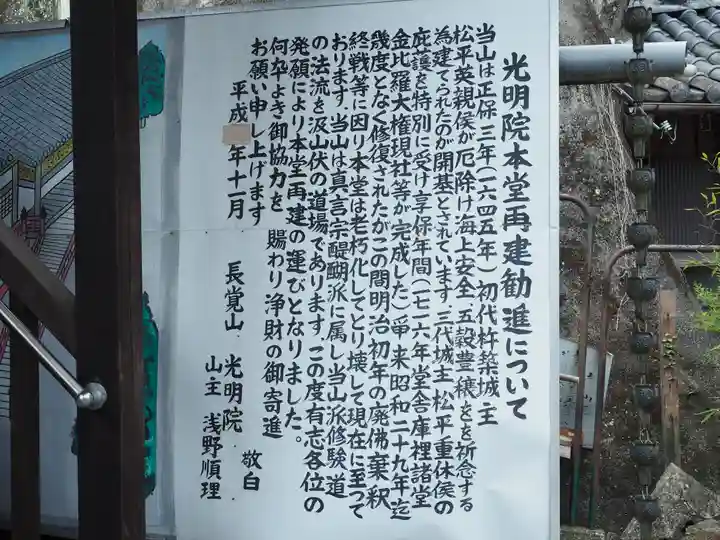 光明院本堂再建勧進について
当山は正保三年(一六四五年)初代杵築城主
松平英親侯が厄除け海上安全五穀豊穣をを祈念する
為建てられたのが開基とされています三代城主松平重休侯の
庇護を特別に受け享保年間(七一六年堂舎庫裡諸堂
金比羅大権現社等が完成した)爾来昭和二十九年迄
幾度となく修復されたがこの間明治初年の廃佛棄釈
終戦等に因り本堂は老朽化してとり壊して現在に至って
おります。当山は真言宗醍醐派に属し当山派修験道
の法流を汲山伏の道場であります。この度有志各位の
発願により本堂再建の運びとなりました。
何卒よき御協力を賜わり浄財の御寄進
お願い申し上げます
平成 年十一月
長覚山 光明院 敬白
山主 浅野順理